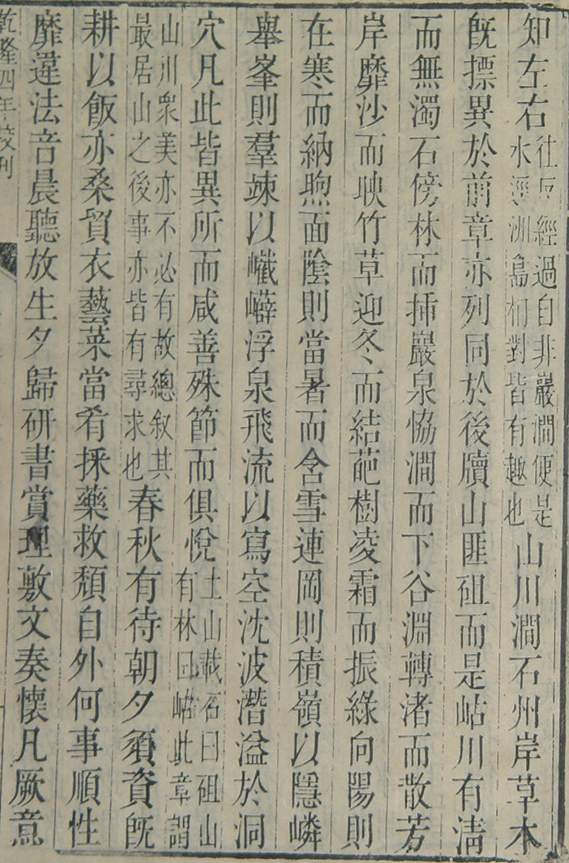 知左右
往反經過自非巖澗便是
水涇洲島相對皆有趣也
山川澗石州岸草木
既摽異於前章亦列同於後牘山匪砠而是岵川有清
而無濁石傍林而插巖泉恊澗而下谷淵轉渚而散芳
岸靡沙而映竹草迎冬而結葩樹凌霜而振綠向陽則
在寒而納煦面陰則當暑而含雪連岡則積嶺以隱嶙
舉峯則羣竦以嶻嶭浮泉飛流以寫空沈波潛溢於洞
穴凡此皆異所而咸善殊節而俱悅
土山載石曰砠山
有林曰岵此章謂
山川衆美亦不必有故總叙其
最居山之後事亦皆有尋求也
春秋有待朝夕須資既
耕以飯亦桑貿衣藝菜當肴採藥救頹自外何事順性
靡違法音晨聽放生夕歸研書賞理敷文奏懷凡厥意
乾隆四年校刊